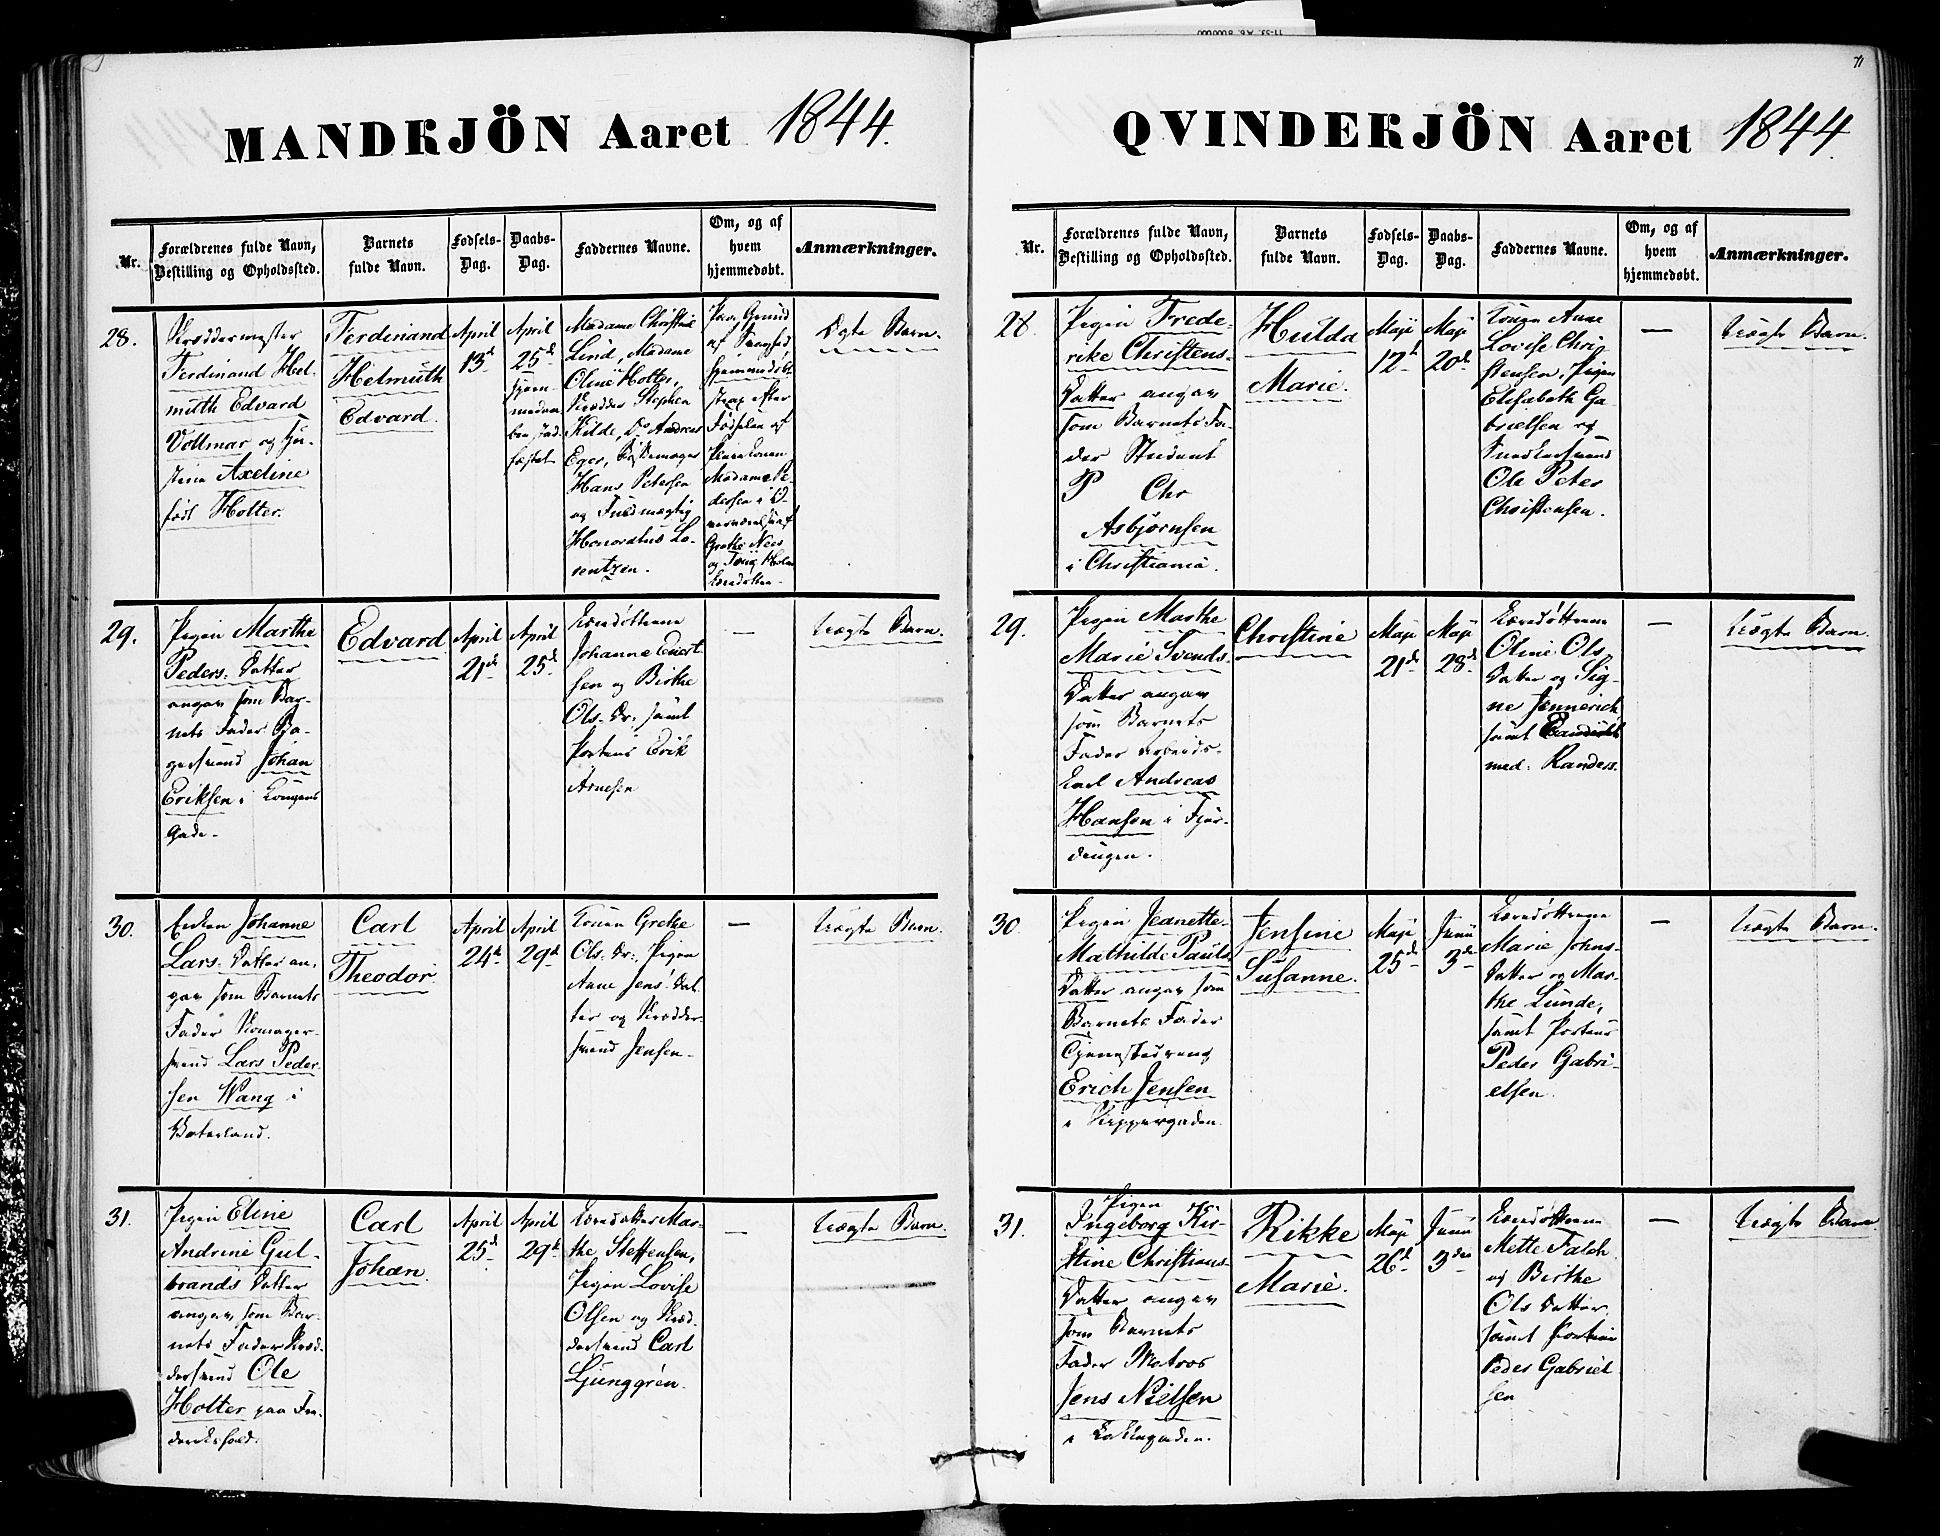 MANDKJÖN Aaret 1844.
Nr.
Forældrenes fulde Navn,
Bestilling og Opholdssted.
Barnets
fulde Navn.
Fødsels-
Dag.
Daabs-
Dag.
Faddernes Navne.
Om, og af
hvem
hjemmedøbt.
Anmærkninger.
28.
Skræddermester
Ferdinand Hel-
muth Edvard
Vollmar og Hu-
struе Axeline
født Holter.
Ferdinand
Helmuth
Edvard.
April
13d
April
25d
hjem-
medaa-
ben stad-
fæstet
Madame Christine
Lind, Madame
Oline Holter,
Skrædder Stephen
Kilde, Do Andreas
Eger,
Hans Petersen
og Fuldmægtig
Honoratus Lo-
rentzen.
Paa Grund
af Svaghed
hjemmedøbt
strax efter
Fødselen af
Madame Pe-
dersen i O-
af
Grethe Nees
og
Ægte Barn.
29.
Pigen Marthe
Peders. Datter
angav som Bar-
nets Fader Ba-
gersvend Johan
Eriksen i Kongens
Gade.
Edvard
April
21de
April
25d
Læredøttrene
Johanne Evert-
sen og Birthe
Ols. Dr. samt
Porteur Erik
Arnesen
—
Uægte Barn.
30.
Enken Johanne
Lars. Datter an-
gav som Barnets
Fader Skomager-
svend Lars Peder-
sen Wang i
Vaterland.
Carl
Theodor.
April
24d
April
29d
Konen Grethe
Ols. Dr., Pigen
Anne Jens. Dat-
ter og Skrædder-
svend Jensen.
—
Uægte Barn.
31.
Pigen Eline
Andrine Gul-
brands Datter
angav som Bar-
nets Fader Skræd-
dersvend Ole
Holter paa Fre-
derikshald.
Carl
Johan.
April
25d
April
29d
Læredatter Mar-
the Steffensen,
Pigen Lovise
Olsen og Skræd-
dersvend Carl
Ljunggrén.
—
Uægte Barn.
71
QVINDERJÖN Aaret 1844.
Nr.
Forældrenes fulde Navn,
Bestilling og Opholdssted.
Barnets
fulde Navn.
Fødsels-
Dag.
Daabs-
Dag.
Faddernes Navne.
Om, og af
hvem
hjemmedøbt.
Anmærkninger.
28.
Pigen Frede-
rike Christens-
Datter angav
som Barnets Fa-
der Student
P Chr
Asbjørnsen
i Christiania.
Hulda
Marie.
Maji
12d
Maji
20d
Konen Anne
Lovise Chri-
stensen, Pigen
Elisabeth Ga-
brielsen og
Snedkersvend
Ole Peter
Christensen.
—
Uægte Barn.
29.
Pigen Marthe
Marie Svends-
Datter angav
som Barnets
Fader Arbeids-
karl Andreas
Hansen i Fjer-
dingen.
Christine
Maji
21d
Maji
28d
Læredøttrene
Oline Ols
Datter og Sig-
ne Jennerich,
samt Candidat
med: Randers.
—
Uægte Barn.
30.
Pigen Jeanette
Mathilde Pauls
Datter angav som
Barnets Fader
Tjenestedreng
Erich Jensen
i Skippergaden.
Jensine
Susanne.
Maji
25d
Junii
3die
Læredøttrene
Marie Johns-
Datter og Mar-
the Lunde,
samt Porteur
Peder Gabri-
elsen.
—
Uægte Barn.
31.
Pigen
Ingeborg Kir-
stine Christians-
Datter angav
som Barnets
Fader Matros
Jens Nielsen
i Lakkegaden.
Rikke
Marie.
Maji
26d
Junii
3die
Læredøttrene
Mette Falch
og Birthe
Ols Datter,
samt Porteur
Peder Gabriel-
sen
—
Uægte Barn